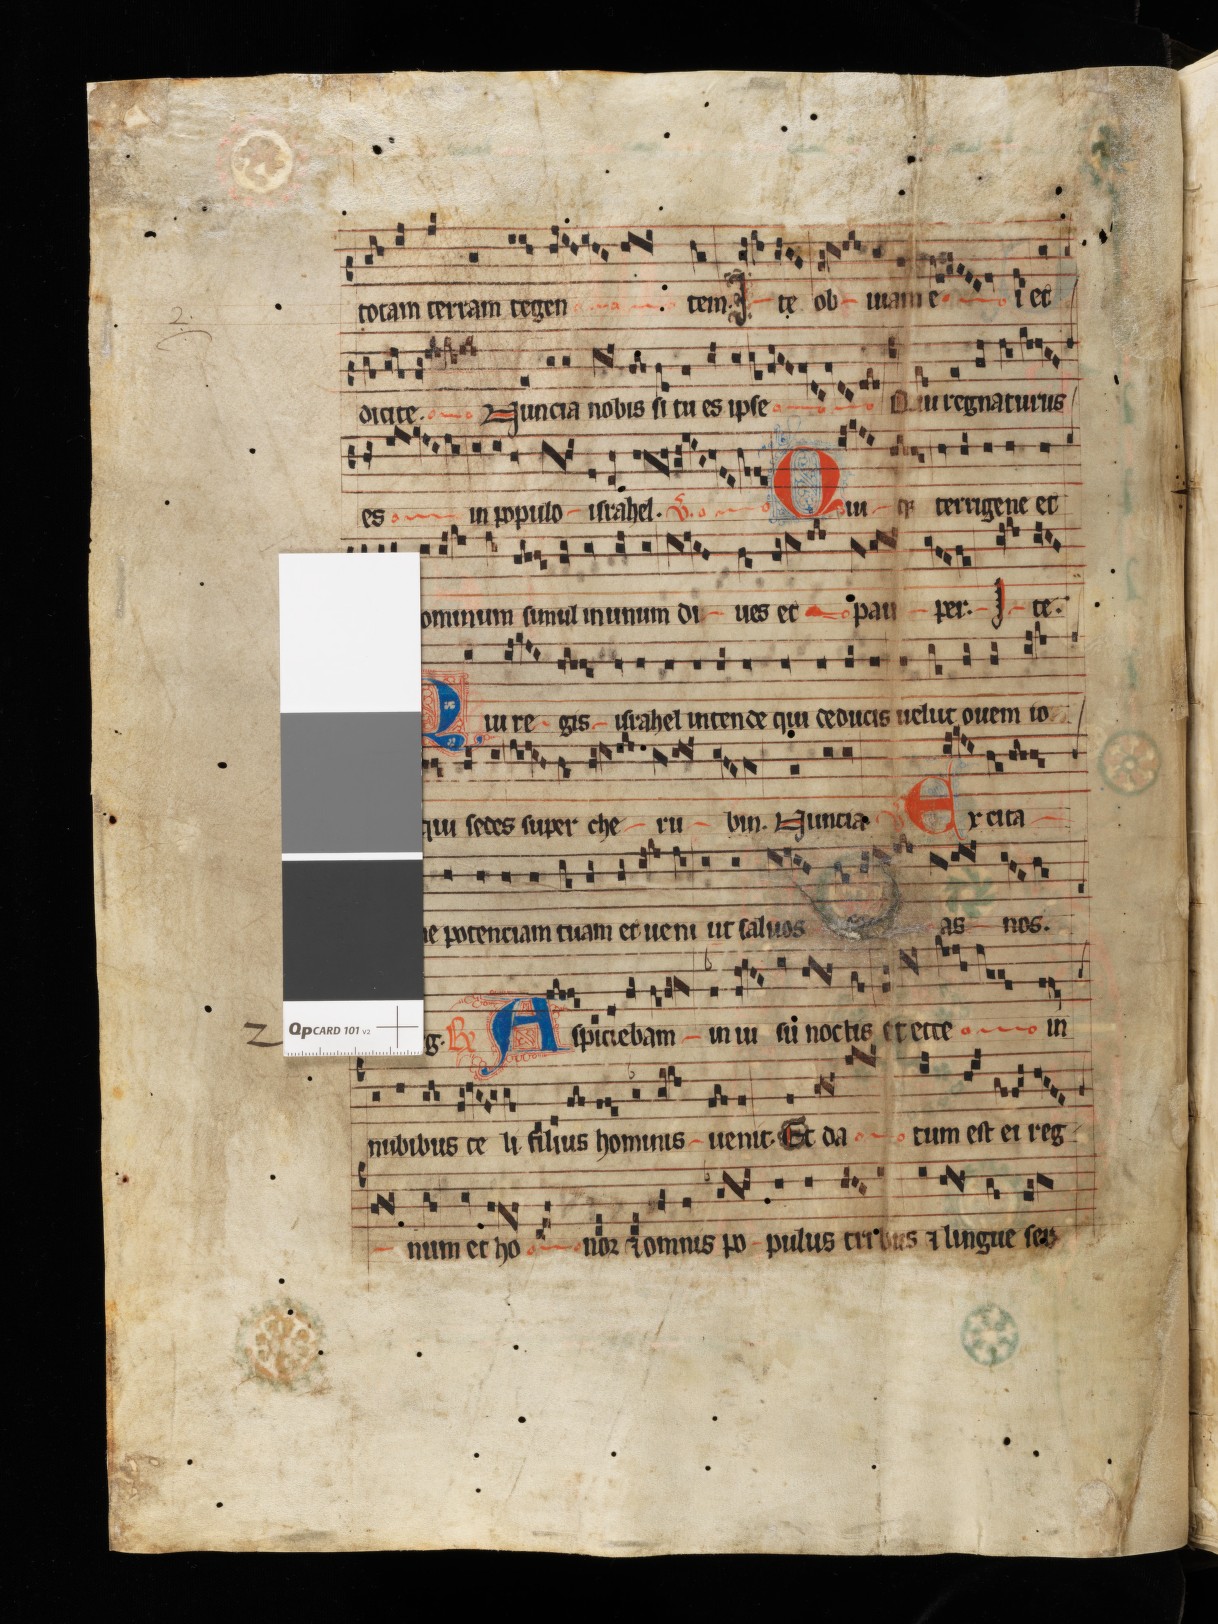 totam terram tegen tem. I te ob uiam e i et
dicite. Nuncia nobis si tu es ipse Qui regnaturus
es in populo israhel. V. Qui q terrigene et
ominum simul in unum di ues et pau per. I te.
Qui re gis israhel intende qui deducis uelut ouem io
qui sedes super che ru bin. Nuncia Excita
ne potenciam tuam et ueni ut saluos as nos.
g. R Aspiciebam in ui su noctis et ecce in
nubibus ce li filius hominis uenit. Et da tum est ei reg
num et ho nor et omnis po pulus tribus et lingue ser
2.
2
QPCARD 101 v2